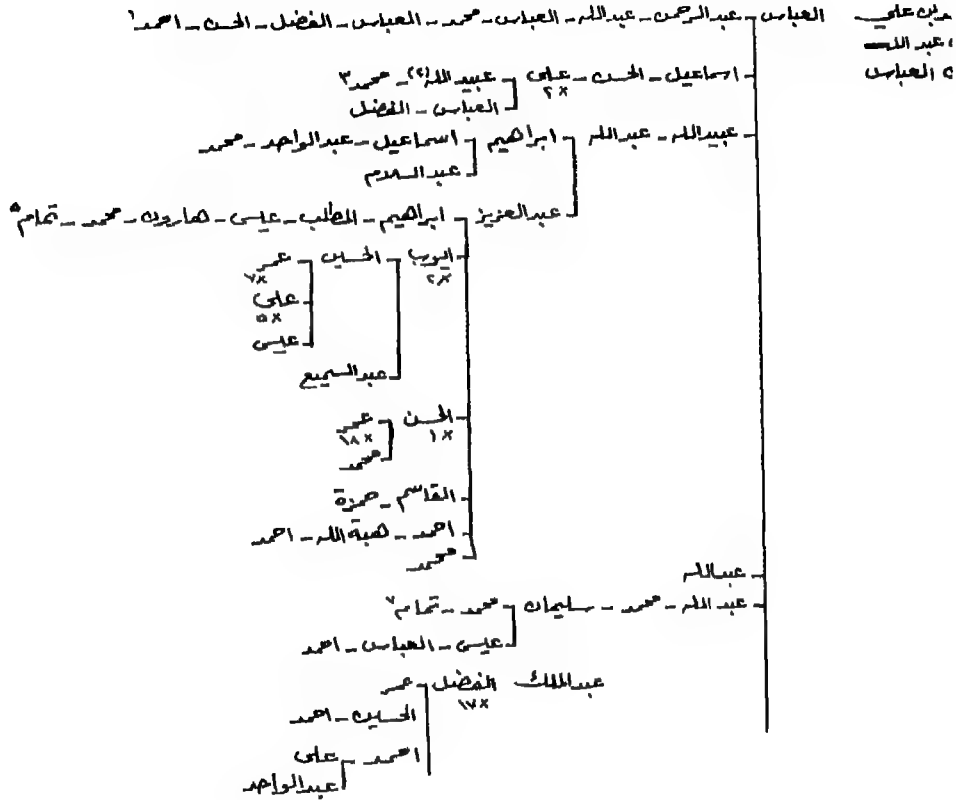 بن علي العباس - عبدالرحمن - عبدالله - العباس - محمد - العباس - الفضل - الحسن - احمد ١
عبدالله
العباس
اسماعيل - الحسن - علي - عبيدالله (٢٢) - محمد ٣
×٢
العباس - الفضل
عبيدالله - عبدالله - ابراهيم - اسماعيل - عبدالواحد - محمد
عبدالسلام
عبدالعزيز - ابراهيم - المطلب - عيسى - هارون - محمد - تمام ٥
ايوب - الحسين - عمر
×٢ ×٧
علي
×٥
عيسى
عبدالسميع
الحسن - عمر
×١ ×١٨
محمد
القاسم - حمزة
احمد - هبة الله - احمد
محمد
عبدالله
عبدالله - محمد - سليمان - محمد - تمام ٧
عيسى - العباس - احمد
عبدالملك الفضل - عمر
×١٧
الحسين - احمد
احمد - علي
عبدالواحد